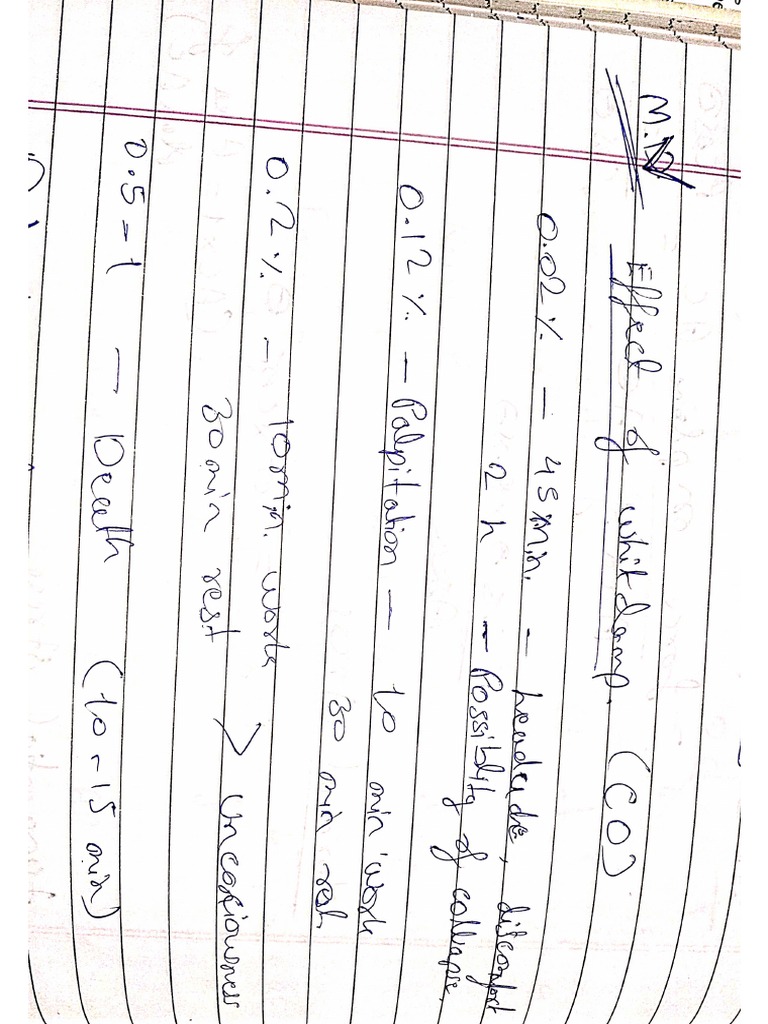 M.P.
Effect of whitdamp. (CO)
0.02% - 45 min. - headache, discomfort
2 h - Possiblity of collapse.
0.12% - Palpitation - 10 min work
30 min rest
0.2% - 10 min. work
30 min rest > Unconsciousness
0.5 - 1 - Death (10 - 15 min)